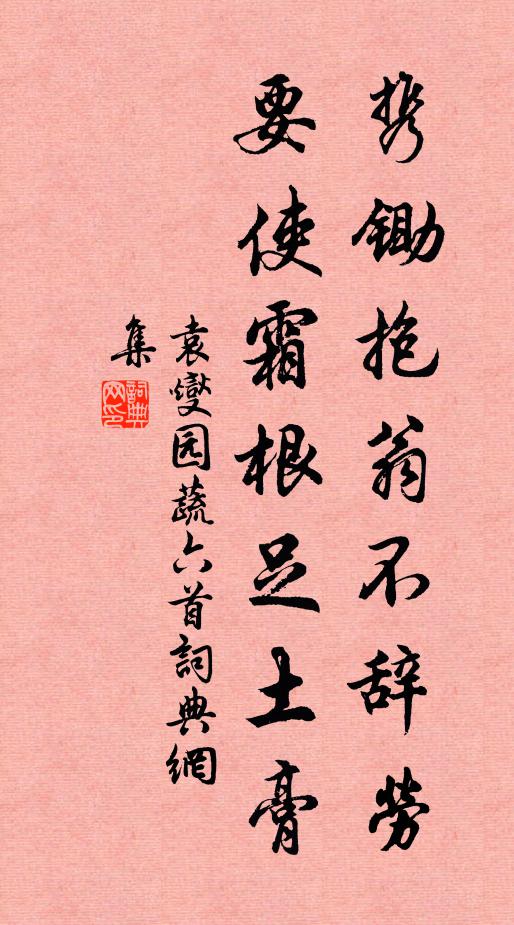 携锄抱翁不辞劳
要使霜根足土膏
袁燮园蔬六首詞典網
集
詞典
网印